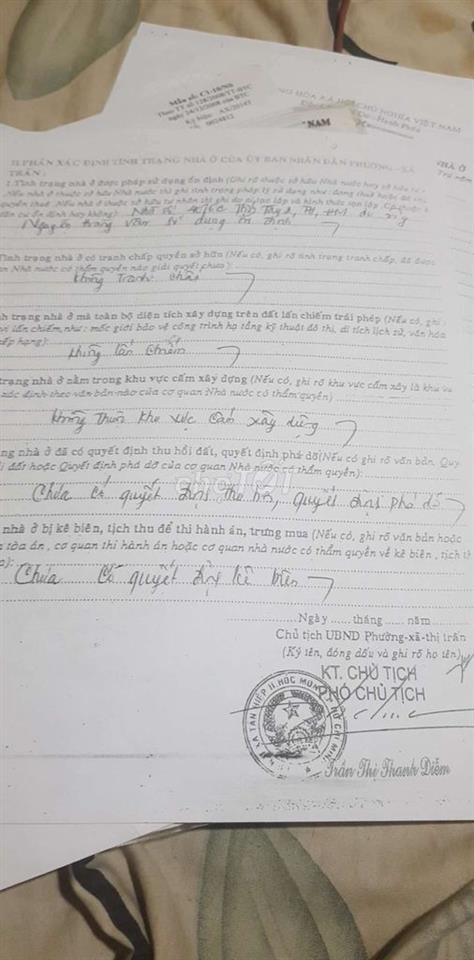 Mẫu số: C1-10/NS
Theo TT số 128/2008/TT-BTC
ngày 24/12/2008 của BTC
Ký hiệu: AX/2014T
Số: 0024812
NG HÒA XÃ HỘI CHỦ NGHĨA VIỆT NAM
NAM
II. PHẦN XÁC ĐỊNH TÌNH TRẠNG NHÀ Ở CỦA ỦY BAN NHÂN DÂN PHƯỜNG - XÃ
TRẤN :
1. Tình trạng nhà ở được pháp sử dụng ổn định (Ghi rõ thuộc sở hữu Nhà nước hay sở hữu tư
. Nếu nhà ở thuộc sở hữu Nhà nước thì ghi tình trạng pháp lý sử dụng như : đang thuê hoặc đã
Nhà số
sử dụng ổn định
Tình trạng nhà ở có tranh chấp quyền sở hữu (Nếu có, ghi rõ tình trạng tranh chấp, đã được
an Nhà nước có thẩm quyền nào giải quyết chưa):
Không tranh chấp
nh trạng nhà ở mà toàn bộ diện tích xây dựng trên đất lấn chiếm trái phép (Nếu có, ghi
vi lấn chiếm, như : mốc giới bảo vệ công trình hạ tầng kỹ thuật đô thị, di tích lịch sử, văn hóa
xếp hạng):
Không lấn chiếm
trạng nhà ở nằm trong khu vực cấm xây dựng (Nếu có, ghi rõ khu vực cấm xây là khu vực
xác định theo văn bản nào của cơ quan Nhà nước có thẩm quyền)
Không thuộc khu vực cấm xây dựng
ng nhà ở đã có quyết định thu hồi đất, quyết định phá dỡ (Nếu có ghi rõ văn bản. Quy
i đất hoặc Quyết định phá dỡ của cơ quan Nhà nước có thẩm quyền):
Chưa có quyết định thu hồi, quyết định phá dỡ
nhà ở bị kê biên, tịch thu để thi hành án, trưng mua (Nếu có, ghi rõ văn bản hoặc
tòa án , cơ quan thi hành án hoặc cơ quan nhà nước có thẩm quyền về kê biên , tịch th
Chưa có quyết định kê biên
Ngày ...... tháng ...... năm
Chủ tịch UBND Phường-xã-thị trấn
(Ký tên, đóng dấu và ghi rõ họ tên)
KT. CHỦ TỊCH
PHÓ CHỦ TỊCH
XÃ TÂN HIỆP H. HÓC MÔN HỒ CHÍ MINH
Trần Thị Thanh Diễm